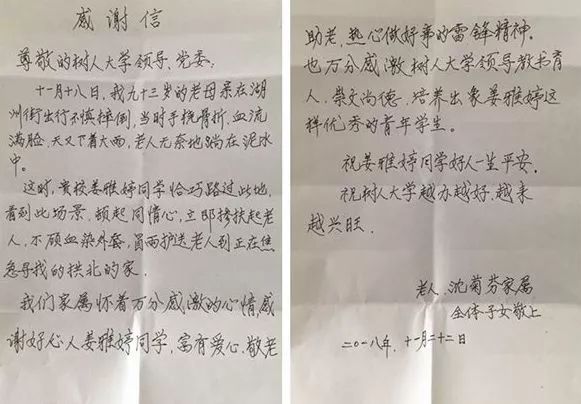 感谢信
尊敬的树人大学领导、党委：
十一月十八日，我九十三岁的老母亲在湖
州街出行不慎摔倒，当时手挽骨折，血流
满脸，天又下着大雨，老人无奈地躺在泥水
中。
这时，贵校姜雅婷同学恰巧路过此地，
看到此场景，顿起同情心，立即搀扶起老
人，不顾血染外套，冒雨护送老人到正在焦
急寻找的拱北的家。
我们家属怀着万分感激的心情感
谢好心人姜雅婷同学，富有爱心、敬老
助老，热心做好事的雷锋精神。
也万分感激树人大学领导教书育
人，崇文尚德，培养出象姜雅婷这
样优秀的青年学生。
祝姜雅婷同学好人一生平安。
祝树人大学越办越好，越来
越兴旺。
老人 沈菊芬家属
全体子女敬上
二〇一八年，十一月二十二日